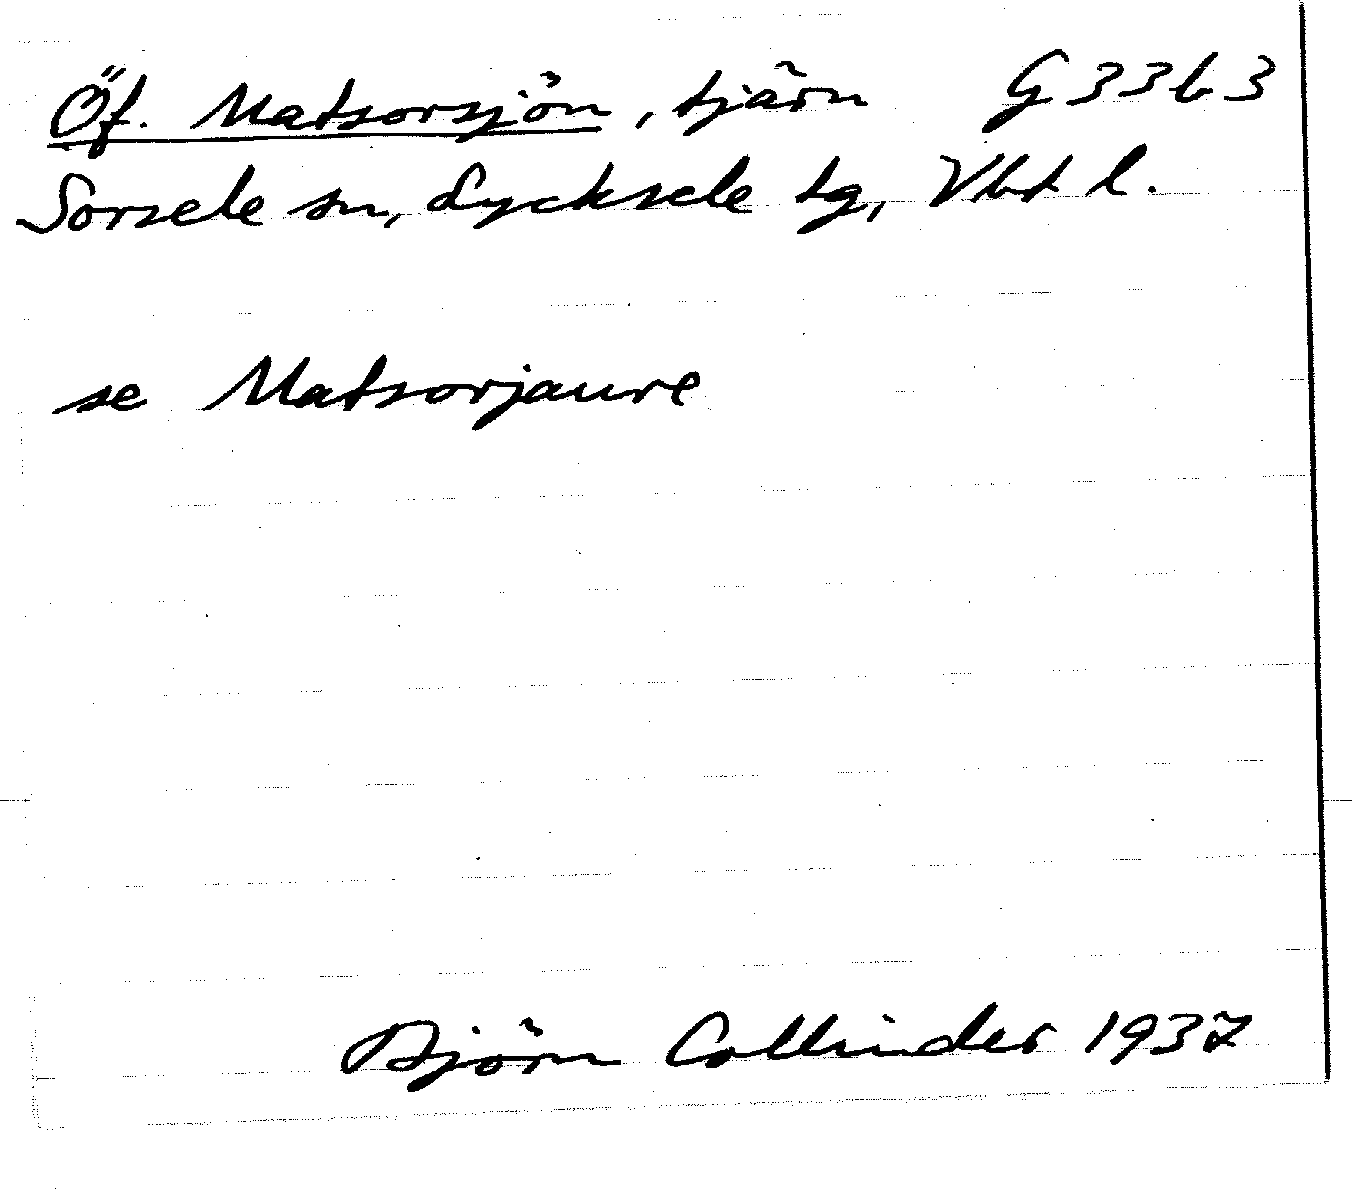 Öf. Matsorsjön, tjärn G 33 b 3
Sorsele sn, Lycksele tg, Vbt l.
se Matsorjaure
Björn Collinder 1937